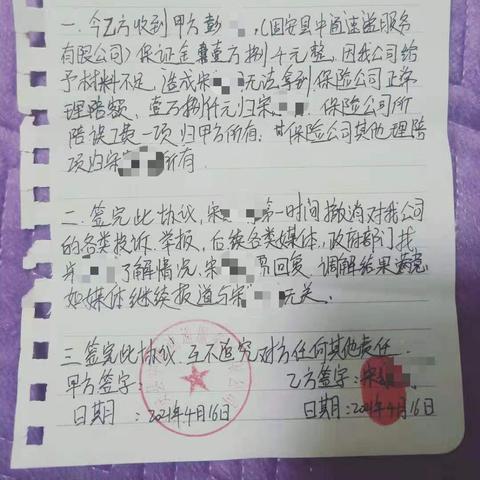 一.今乙方收到甲方彭 ,(固安县中通速溢服务
有限公司)保证金壹万捌仟元整,因我公司给
予材料不足,造成宋 无法拿到保险公司正常
理赔额,壹万捌仟元归宋 .保险公司所
陪误工费一项归甲方所有.其保险公司其他理陪
项归宋 所有.
二.签完此协议,宋 第一时间撤消对我公司
的各类投诉.举报,后续各类媒体,政府部门找
宋 了解情况,宋 回复,调解结果满意
如媒体继续报道与宋 无关.
三.签完此协议.互不追究对方任何其他责任.
甲方签字: 乙方签字:宋
日期:2021年4月16日 日期:2021年4月16日